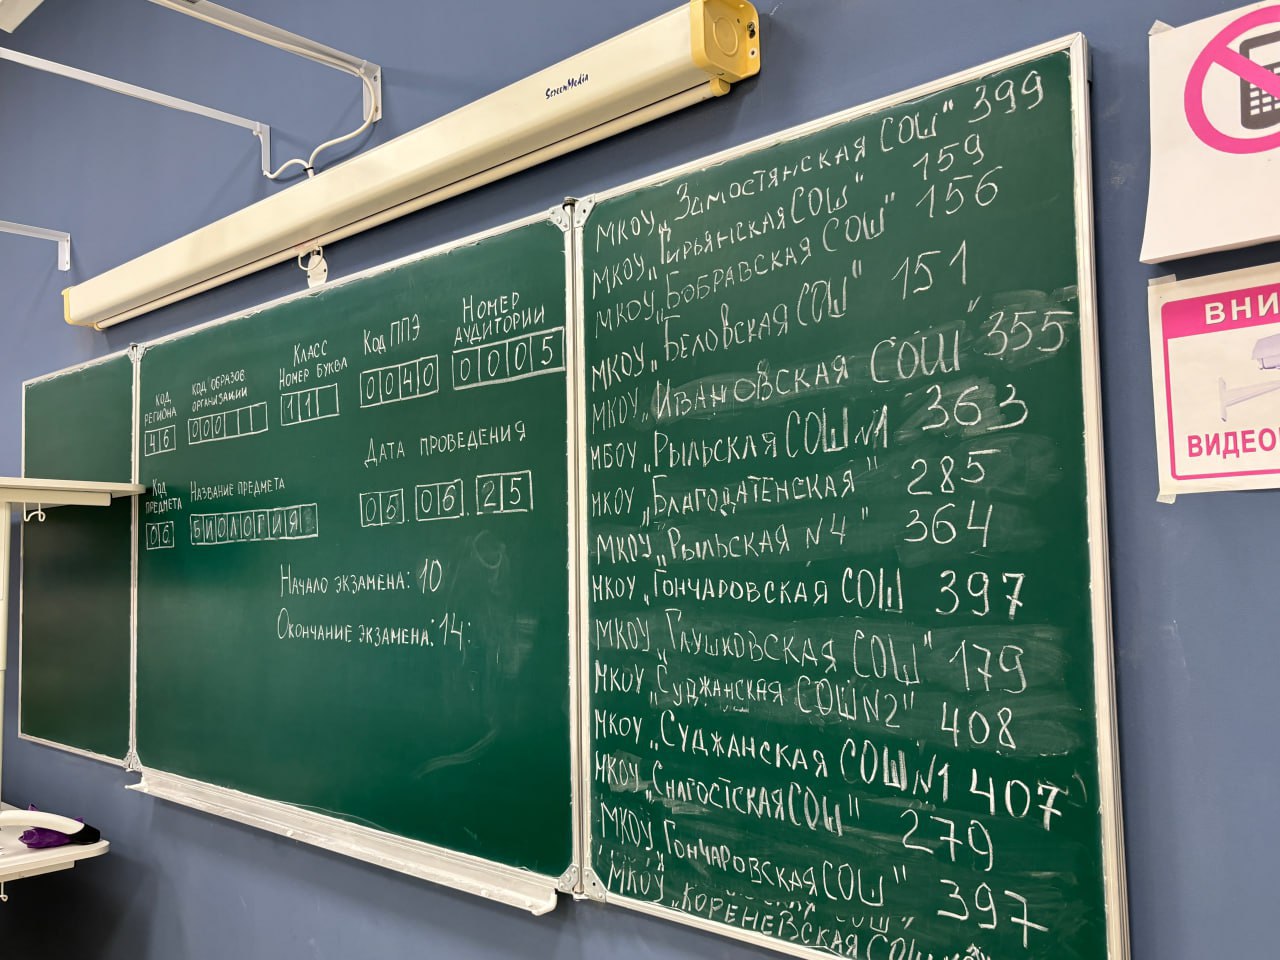 ScreenMedia
КОД РЕГИОНА
46
КОД ОБРАЗОВ ОРГАНИЗАЦИИ
000
КЛАСС НОМЕР БУКВА
11
КОД ППЭ
0040
НОМЕР АУДИТОРИИ
0005
КОД ПРЕДМЕТА
06
НАЗВАНИЕ ПРЕДМЕТА
БИОЛОГИЯ
ДАТА ПРОВЕДЕНИЯ
05.06.25
НАЧАЛО ЭКЗАМЕНА: 10
ОКОНЧАНИЕ ЭКЗАМЕНА: 14:
МКОУ „Замостянская СОШ" 399
МКОУ „Гирьянская СОШ" 159
МКОУ „Бобравская СОШ" 156
МКОУ „Беловская СОШ" 151
МКОУ „Ивановская СОШ" 355
МБОУ „Рыльская СОШ N1 363
МКОУ „Благодатенская" 285
МКОУ „Рыльская N4" 364
МКОУ „Гончаровская СОШ 397
МКОУ „Глушковская СОШ" 179
МКОУ „Суджанская СОШ N2" 408
МКОУ „Суджанская СОШ N1 407
МКОУ „Снагостская СОШ" 279
МКОУ „Гончаровская СОШ" 397
МКОУ „Кореневская СОШ
ВНИ
ВИДЕО